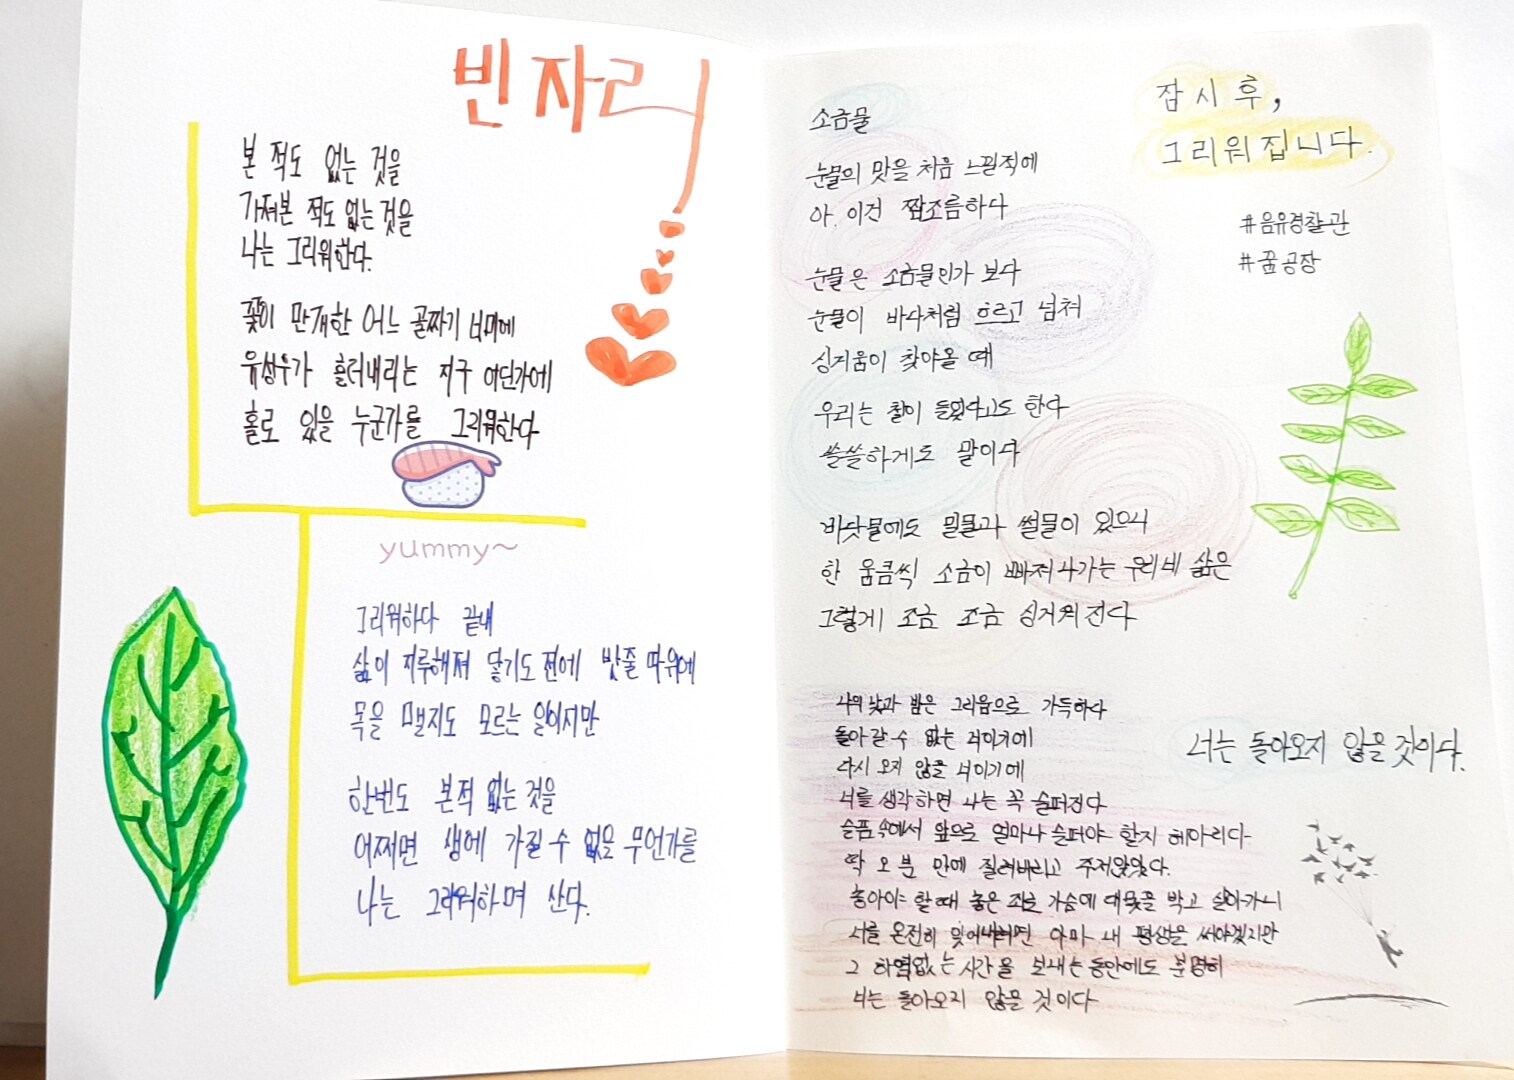 빈자리
본 적도 없는 것을
가져본 적도 없는 것을
나는 그리워한다.
꽃이 만개한 어느 골짜기 너머에
유성우가 흘러내리는 지구 어딘가에
홀로 있을 누군가를 그리워한다
yummy~
그리워하다 끝내
삶이 지루해져 닳기도 전에 밧줄 따위에
목을 맬지도 모르는 일이지만
한번도 본적 없는 것을
어쩌면 생에 가질 수 없을 무언가를
나는 그리워하며 산다.
잠시 후,
그리워집니다.
#음유경찰관
#꿈공장
소금물
눈물의 맛을 처음 느낄적에
아, 이건 짭조름하다
눈물은 소금물인가 보다
눈물이 바다처럼 흐르고 넘쳐
싱거움이 찾아올 때
우리는 철이 들었다고도 한다
쓸쓸하게도 말이다
바닷물에도 밀물과 썰물이 있으니
한 움큼씩 소금이 빠져나가는 우리네 삶은
그렇게 조금 조금 싱거워 진다
너는 돌아오지 않을 것이다.
나의 낮과 밤은 그리움으로 가득하다
돌아갈 수 없는 너이기에
다시 오지 않을 너이기에
너를 생각하면 나는 꼭 슬퍼진다
슬픔 속에서 앞으로 얼마나 슬퍼야 할지 헤아리다
딱 오 분 만에 질려버리고 주저앉았다.
놓아야 할 때 놓은 죄로 가슴에 대못을 박고 살아가니
너를 온전히 잊어내려면 아마 내 평생을 써야겠지만
그 하염없는 시간을 보내는 동안에도 분명히
너는 돌아오지 않을 것이다